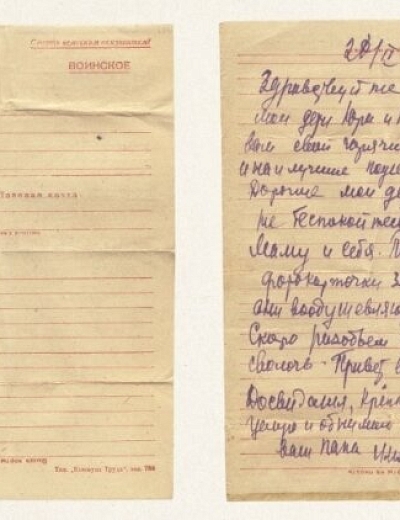 Смерть немецким оккупантам!
ВОИНСКОЕ
Полевая почта
Тип. „Коммуна Труда", зак. 786
Здравствуйте
мои дети Юра и
вам свой горячи
и наилучшие поже
Дорогие мои де
не беспокойтесь
маму и себя. П
фотокарточки З
они воодушевляю
Скоро разобьем
сволочь. Привет
Досвидания, крепк
целую и обнимаю
ваш папа